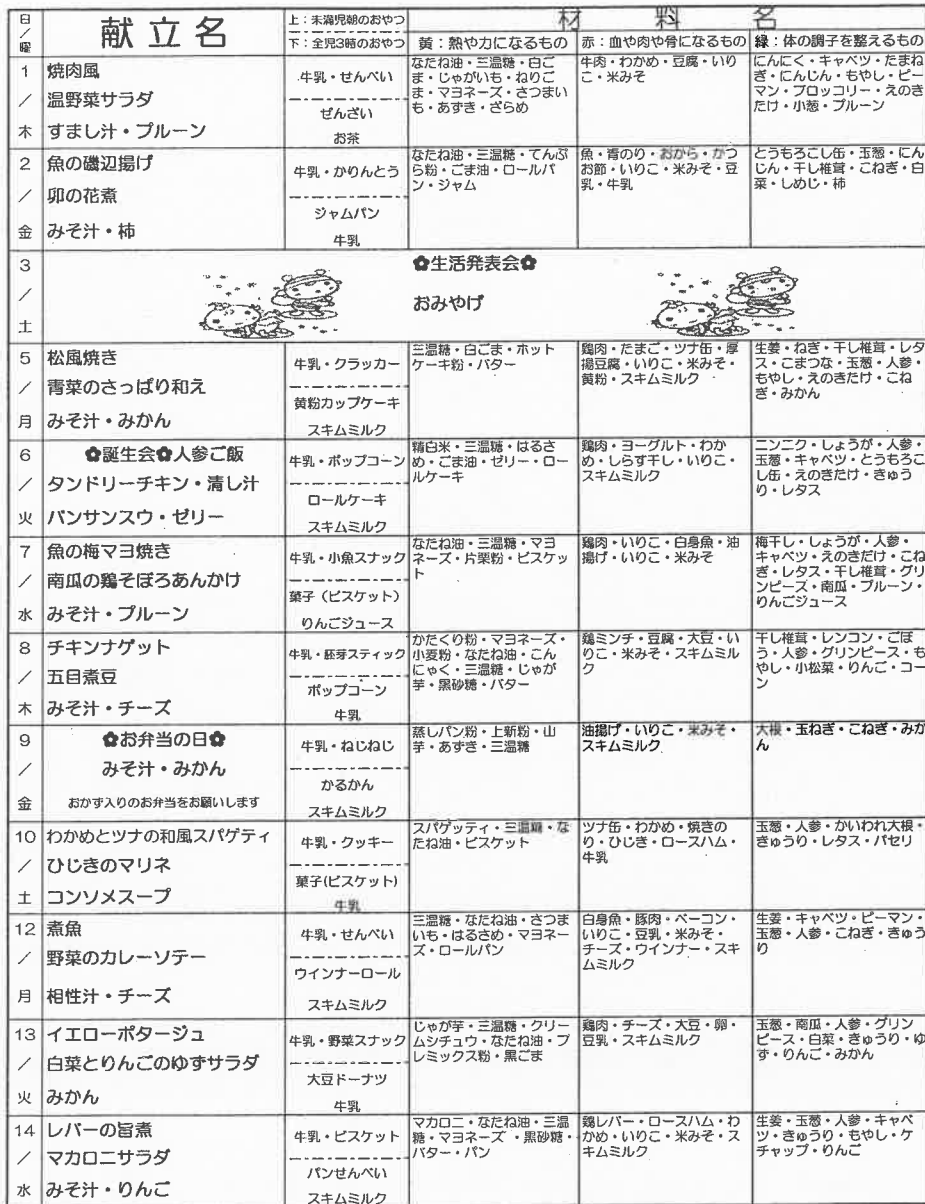 日/曜
献立名
上：未満児朝のおやつ
下：全児3時のおやつ
材料名
黄：熱や力になるもの
赤：血や肉や骨になるもの
緑：体の調子を整えるもの
1/木
焼肉風
温野菜サラダ
すまし汁・プルーン
牛乳・せんべい
ぜんざい
お茶
なたね油・三温糖・白ご
ま・じゃがいも・ねりご
ま・マヨネーズ・さつまい
も・あずき・ざらめ
牛肉・わかめ・豆腐・いり
こ・米みそ
にんにく・キャベツ・たまね
ぎ・にんじん・もやし・ピー
マン・ブロッコリー・えのき
たけ・小葱・プルーン
2/金
魚の磯辺揚げ
卯の花煮
みそ汁・柿
牛乳・かりんとう
ジャムパン
牛乳
なたね油・三温糖・てんぷ
ら粉・ごま油・ロールパ
ン・ジャム
魚・青のり・おから・かつ
お節・いりこ・米みそ・豆
乳・牛乳
とうもろこし缶・玉葱・にん
じん・干し椎茸・こねぎ・白
菜・しめじ・柿
3/土
✿生活発表会✿
おみやげ
5/月
松風焼き
青菜のさっぱり和え
みそ汁・みかん
牛乳・クラッカー
黄粉カップケーキ
スキムミルク
三温糖・白ごま・ホット
ケーキ粉・バター
鶏肉・たまご・ツナ缶・厚
揚豆腐・いりこ・米みそ・
黄粉・スキムミルク
生姜・ねぎ・干し椎茸・レタ
ス・こまつな・玉葱・人参・
もやし・えのきたけ・こね
ぎ・みかん
6/火
✿誕生会✿人参ご飯
タンドリーチキン・清し汁
バンサンスウ・ゼリー
牛乳・ポップコーン
ロールケーキ
スキムミルク
精白米・三温糖・はるさ
め・ごま油・ゼリー・ロー
ルケーキ
鶏肉・ヨーグルト・わか
め・しらす干し・いりこ・
スキムミルク
ニンニク・しょうが・人参・
玉葱・キャベツ・とうもろこ
し缶・えのきたけ・きゅう
り・レタス
7/水
魚の梅マヨ焼き
南瓜の鶏そぼろあんかけ
みそ汁・プルーン
牛乳・小魚スナック
菓子（ビスケット）
りんごジュース
なたね油・三温糖・マヨ
ネーズ・片栗粉・ビスケッ
ト
鶏肉・いりこ・白身魚・油
揚げ・いりこ・米みそ
梅干し・しょうが・人参・
キャベツ・えのきだけ・こね
ぎ・レタス・干し椎茸・グリ
ンピース・南瓜・プルーン・
りんごジュース
8/木
チキンナゲット
五目煮豆
みそ汁・チーズ
牛乳・胚芽スティック
ポップコーン
牛乳
かたくり粉・マヨネーズ・
小麦粉・なたね油・こん
にゃく・三温糖・じゃが
芋・黒砂糖・バター
鶏ミンチ・豆腐・大豆・い
りこ・米みそ・スキムミル
ク
干し椎茸・レンコン・ごぼ
う・人参・グリンピース・も
やし・小松菜・りんご・コー
ン
9/金
✿お弁当の日✿
みそ汁・みかん
おかず入りのお弁当をお願いします
牛乳・ねじねじ
かるかん
スキムミルク
蒸しパン粉・上新粉・山
芋・あずき・三温糖
油揚げ・いりこ・米みそ・
スキムミルク
大根・玉ねぎ・こねぎ・みか
ん
10/土
わかめとツナの和風スパゲティ
ひじきのマリネ
コンソメスープ
牛乳・クッキー
菓子(ビスケット)
牛乳
スパゲッティ・三温糖・な
たね油・ビスケット
ツナ缶・わかめ・焼きの
り・ひじき・ロースハム・
牛乳
玉葱・人参・かいわれ大根・
きゅうり・レタス・パセリ
12/月
煮魚
野菜のカレーソテー
相性汁・チーズ
牛乳・せんべい
ウインナーロール
スキムミルク
三温糖・なたね油・さつま
いも・はるさめ・マヨネー
ズ・ロールパン
白身魚・豚肉・ベーコン・
いりこ・豆乳・米みそ・
チーズ・ウインナー・スキ
ムミルク
生姜・キャベツ・ピーマン・
玉葱・人参・こねぎ・きゅう
り
13/火
イエローポタージュ
白菜とりんごのゆずサラダ
みかん
牛乳・野菜スナック
大豆ドーナツ
牛乳
じゃが芋・三温糖・クリー
ムシチュウ・なたね油・プ
レミックス粉・黒ごま
鶏肉・チーズ・大豆・卵・
豆乳・スキムミルク
玉葱・南瓜・人参・グリン
ピース・白菜・きゅうり・ゆ
ず・りんご・みかん
14/水
レバーの旨煮
マカロニサラダ
みそ汁・りんご
牛乳・ビスケット
パンせんべい
スキムミルク
マカロニ・なたね油・三温
糖・マヨネーズ・黒砂糖・
バター・パン
鶏レバー・ロースハム・わ
かめ・いりこ・米みそ・ス
キムミルク
生姜・玉葱・人参・キャベ
ツ・きゅうり・もやし・ケ
チャップ・りんご